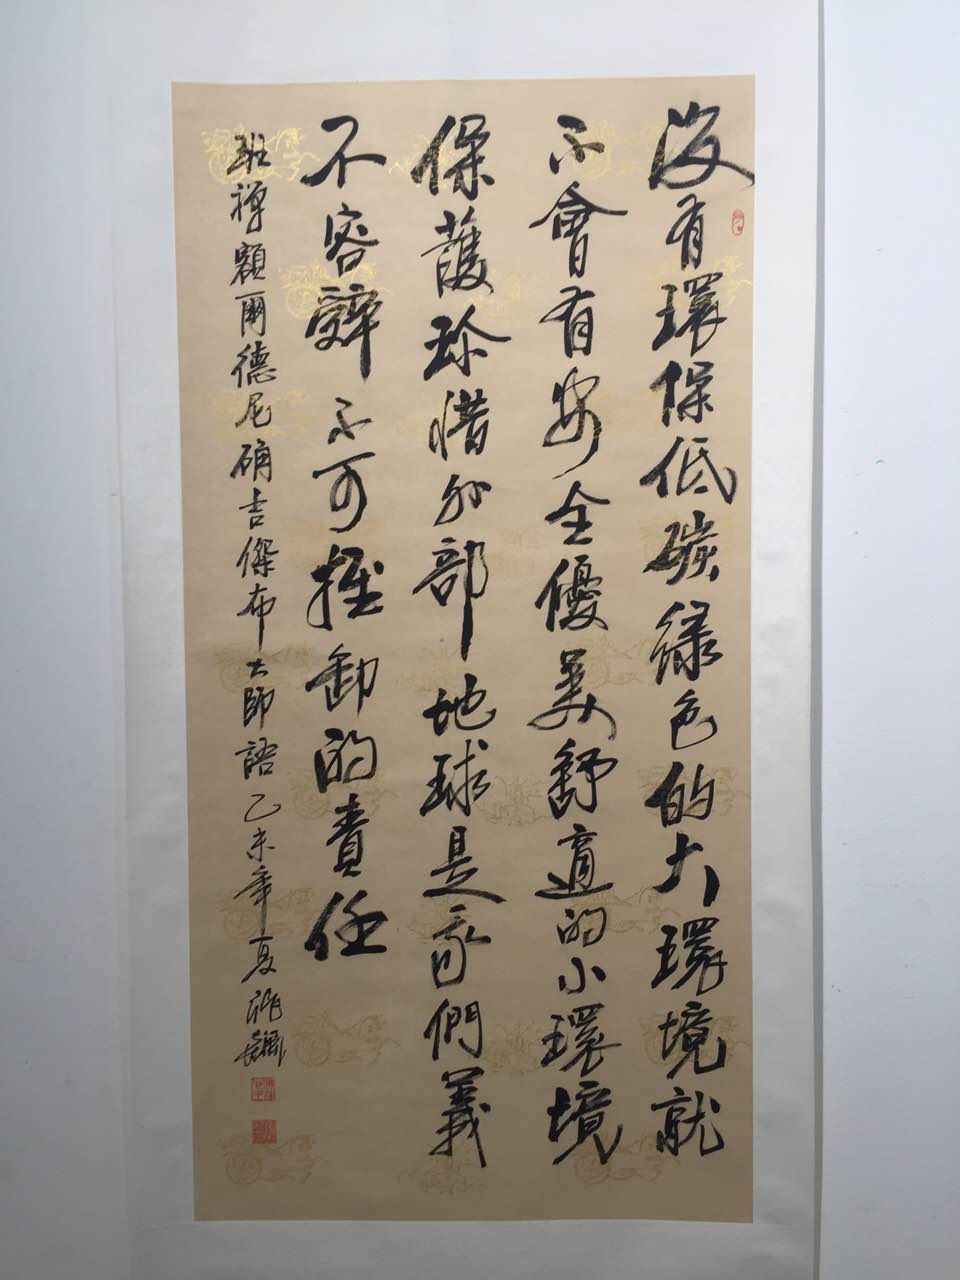 没有環保低碳綠色的大環境就
不會有安全優美舒適的小環境
保護珍惜外部地球是我們義
不容辭不可推卸的責任
班禪額爾德尼確吉傑布大師語乙未年夏